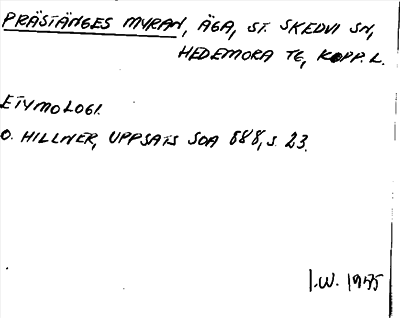 PRÄSTÄNGES MYRAN, ÄGA, ST. SKEDVI SN,
HEDEMORA TG, KOPP. L.
ETYMOLOGI.
O. HILLNER, UPPSATS SOA 888, S. 23.
I.W. 1975